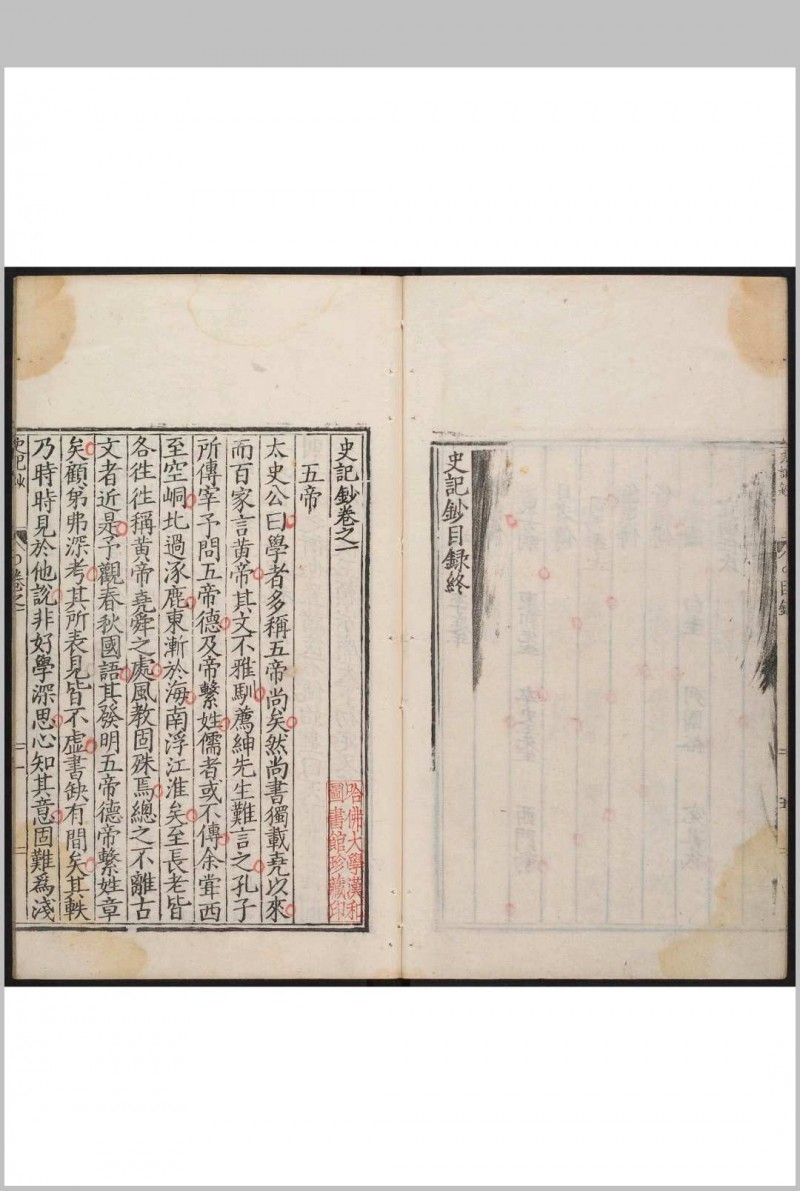 史記鈔目録終
史記鈔卷之一
五帝
太史公曰學者多稱五帝尚矣然尚書獨載堯以來
而百家言黃帝其文不雅馴薦紳先生難言之孔子
所傳宰予問五帝德及帝繫姓儒者或不傳余甞西
至空峒北過涿鹿東漸於海南浮江淮矣至長老皆
各徃徃稱黃帝堯舜之處風教固殊焉總之不離古
文者近是予觀春秋國語其發明五帝德帝繫姓章
矣顧第弗深考其所表見皆不虛書缺有間矣其軼
乃時時見於他說非好學深思心知其意固難爲淺
哈佛大學漢和
圖書館珍藏印